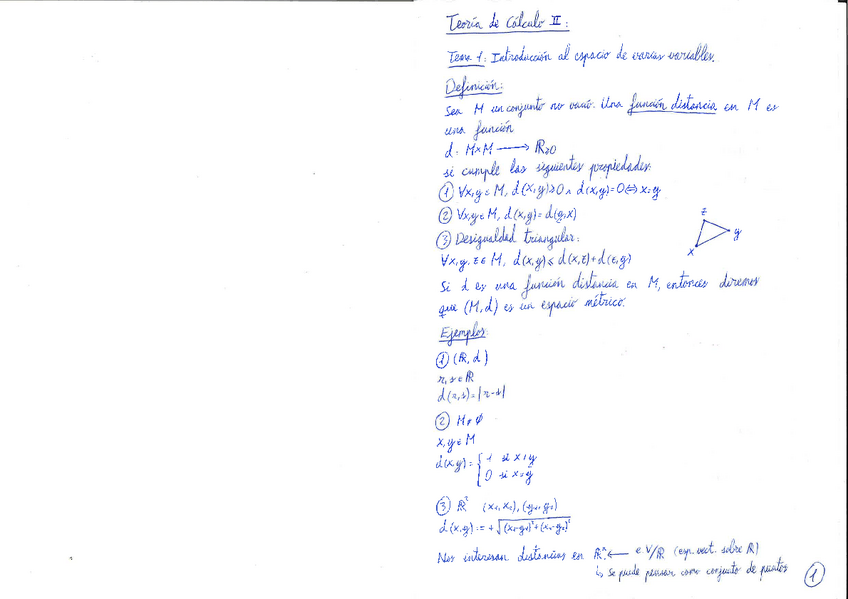 Teoría de Cálculo II:
Tema 1: Introducción al espacio de varias variables.
Definición:
Sea M un conjunto no vacío. Una función distancia en M es
una función
d: M×M ⟶ ℝ≥0
si cumple las siguientes propiedades:
① ∀x,y ∈ M, d(x,y)≥0 ∧ d(x,y)=0⇔x=y
② ∀x,y ∈ M, d(x,y)=d(y,x)
z
y
x
③ Desigualdad triangular:
∀x,y,z ∈ M, d(x,y)≤d(x,z)+d(z,y)
Si d es una función distancia en M, entonces diremos
que (M,d) es un espacio métrico.
Ejemplos:
① (ℝ,d)
r,s ∈ ℝ
d(r,s)=|r-s|
② M≠∅
x,y ∈ M
d(x,y)= { 1 si x≠y
0 si x=y
③ ℝ² (x₁,x₂),(y₁,y₂)
d(x,y):=+√(x₁-y₁)²+(x₂-y₂)²
Nos interesan distancias en ℝⁿ ⟵ e.V/ℝ (esp. vect. sobre ℝ)
↳ se puede pensar como conjunto de puntos
1